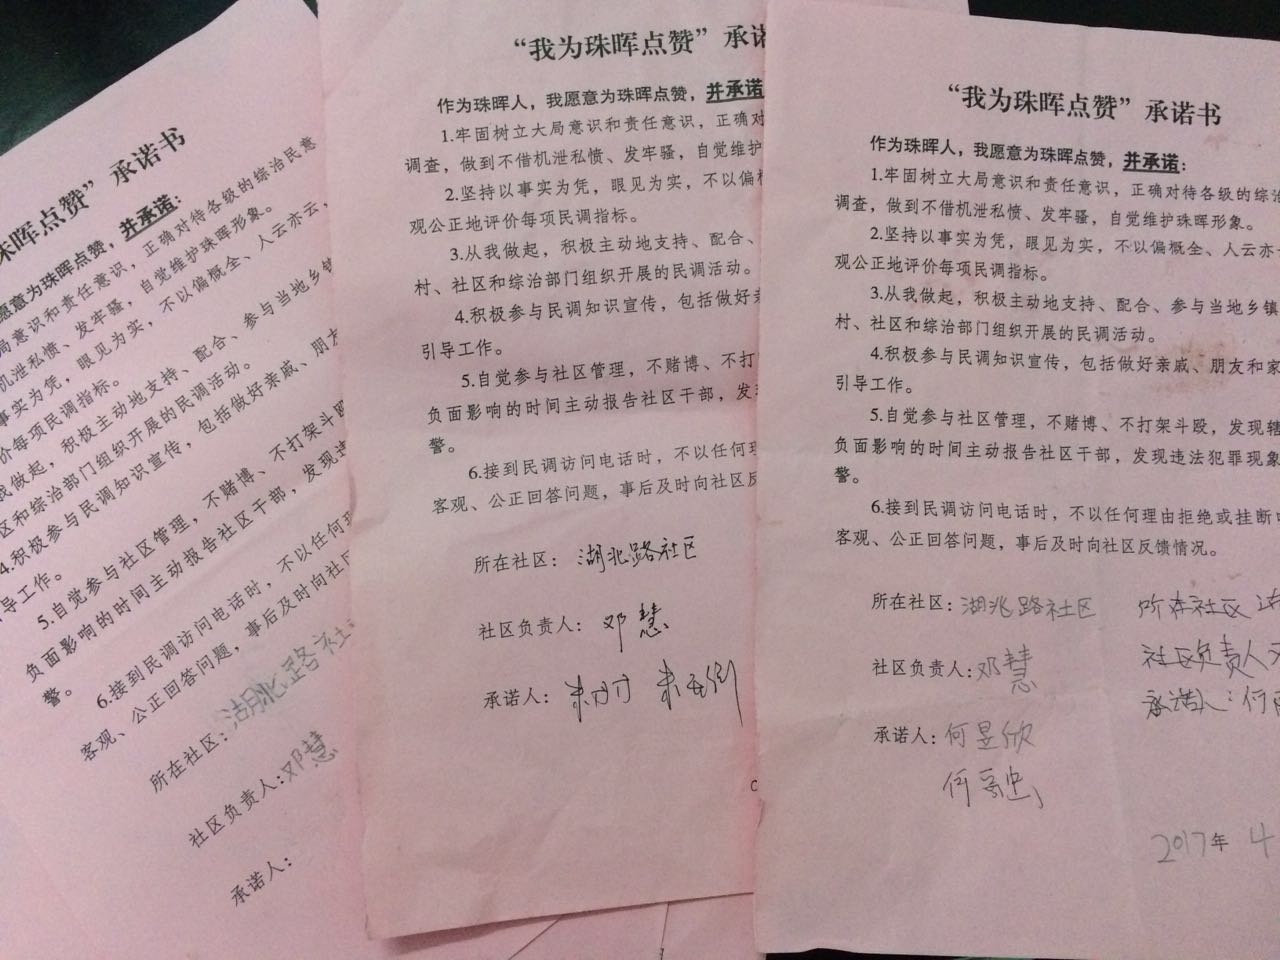 珠晖点赞”承诺书
愿意为珠晖点赞，并承诺：
局意识和责任意识，正确对待各级的综治民意
机泄私愤、发牢骚，自觉维护珠晖形象。
事实为凭，眼见为实，不以偏概全、人云亦云，
价每项民调指标。
我做起，积极主动地支持、配合、参与当地乡镇
区和综治部门组织开展的民调活动。
4.积极参与民调知识宣传，包括做好亲戚、朋友
导工作。
5.自觉参与社区管理，不赌博、不打架斗殴
负面影响的时间主动报告社区干部，发现违
警。
6.接到民调访问电话时，不以任何理
客观、公正回答问题，事后及时向社区
所在社区：湖北路社
社区负责人：邓慧
承诺人：
“我为珠晖点赞”承诺
作为珠晖人，我愿意为珠晖点赞，并承诺
1.牢固树立大局意识和责任意识，正确对
调查，做到不借机泄私愤、发牢骚，自觉维护
2.坚持以事实为凭，眼见为实，不以偏概
观公正地评价每项民调指标。
3.从我做起，积极主动地支持、配合、
村、社区和综治部门组织开展的民调活动。
4.积极参与民调知识宣传，包括做好亲
引导工作。
5.自觉参与社区管理，不赌博、不打架
负面影响的时间主动报告社区干部，发
警。
6.接到民调访问电话时，不以任何理
客观、公正回答问题，事后及时向社区反
所在社区：湖北路社区
社区负责人：邓慧
承诺人：
“我为珠晖点赞”承诺书
作为珠晖人，我愿意为珠晖点赞，并承诺：
1.牢固树立大局意识和责任意识，正确对待各级的综治
调查，做到不借机泄私愤、发牢骚，自觉维护珠晖形象。
2.坚持以事实为凭，眼见为实，不以偏概全、人云亦
观公正地评价每项民调指标。
3.从我做起，积极主动地支持、配合、参与当地乡镇
村、社区和综治部门组织开展的民调活动。
4.积极参与民调知识宣传，包括做好亲戚、朋友和家
引导工作。
5.自觉参与社区管理，不赌博、不打架斗殴，发现辖
负面影响的时间主动报告社区干部，发现违法犯罪现象
警。
6.接到民调访问电话时，不以任何理由拒绝或挂断
客观、公正回答问题，事后及时向社区反馈情况。
所在社区：湖北路社区 所在社区
社区负责人：邓慧 社区负责人
承诺人：何昱欣 承诺人：何
何
2017年4